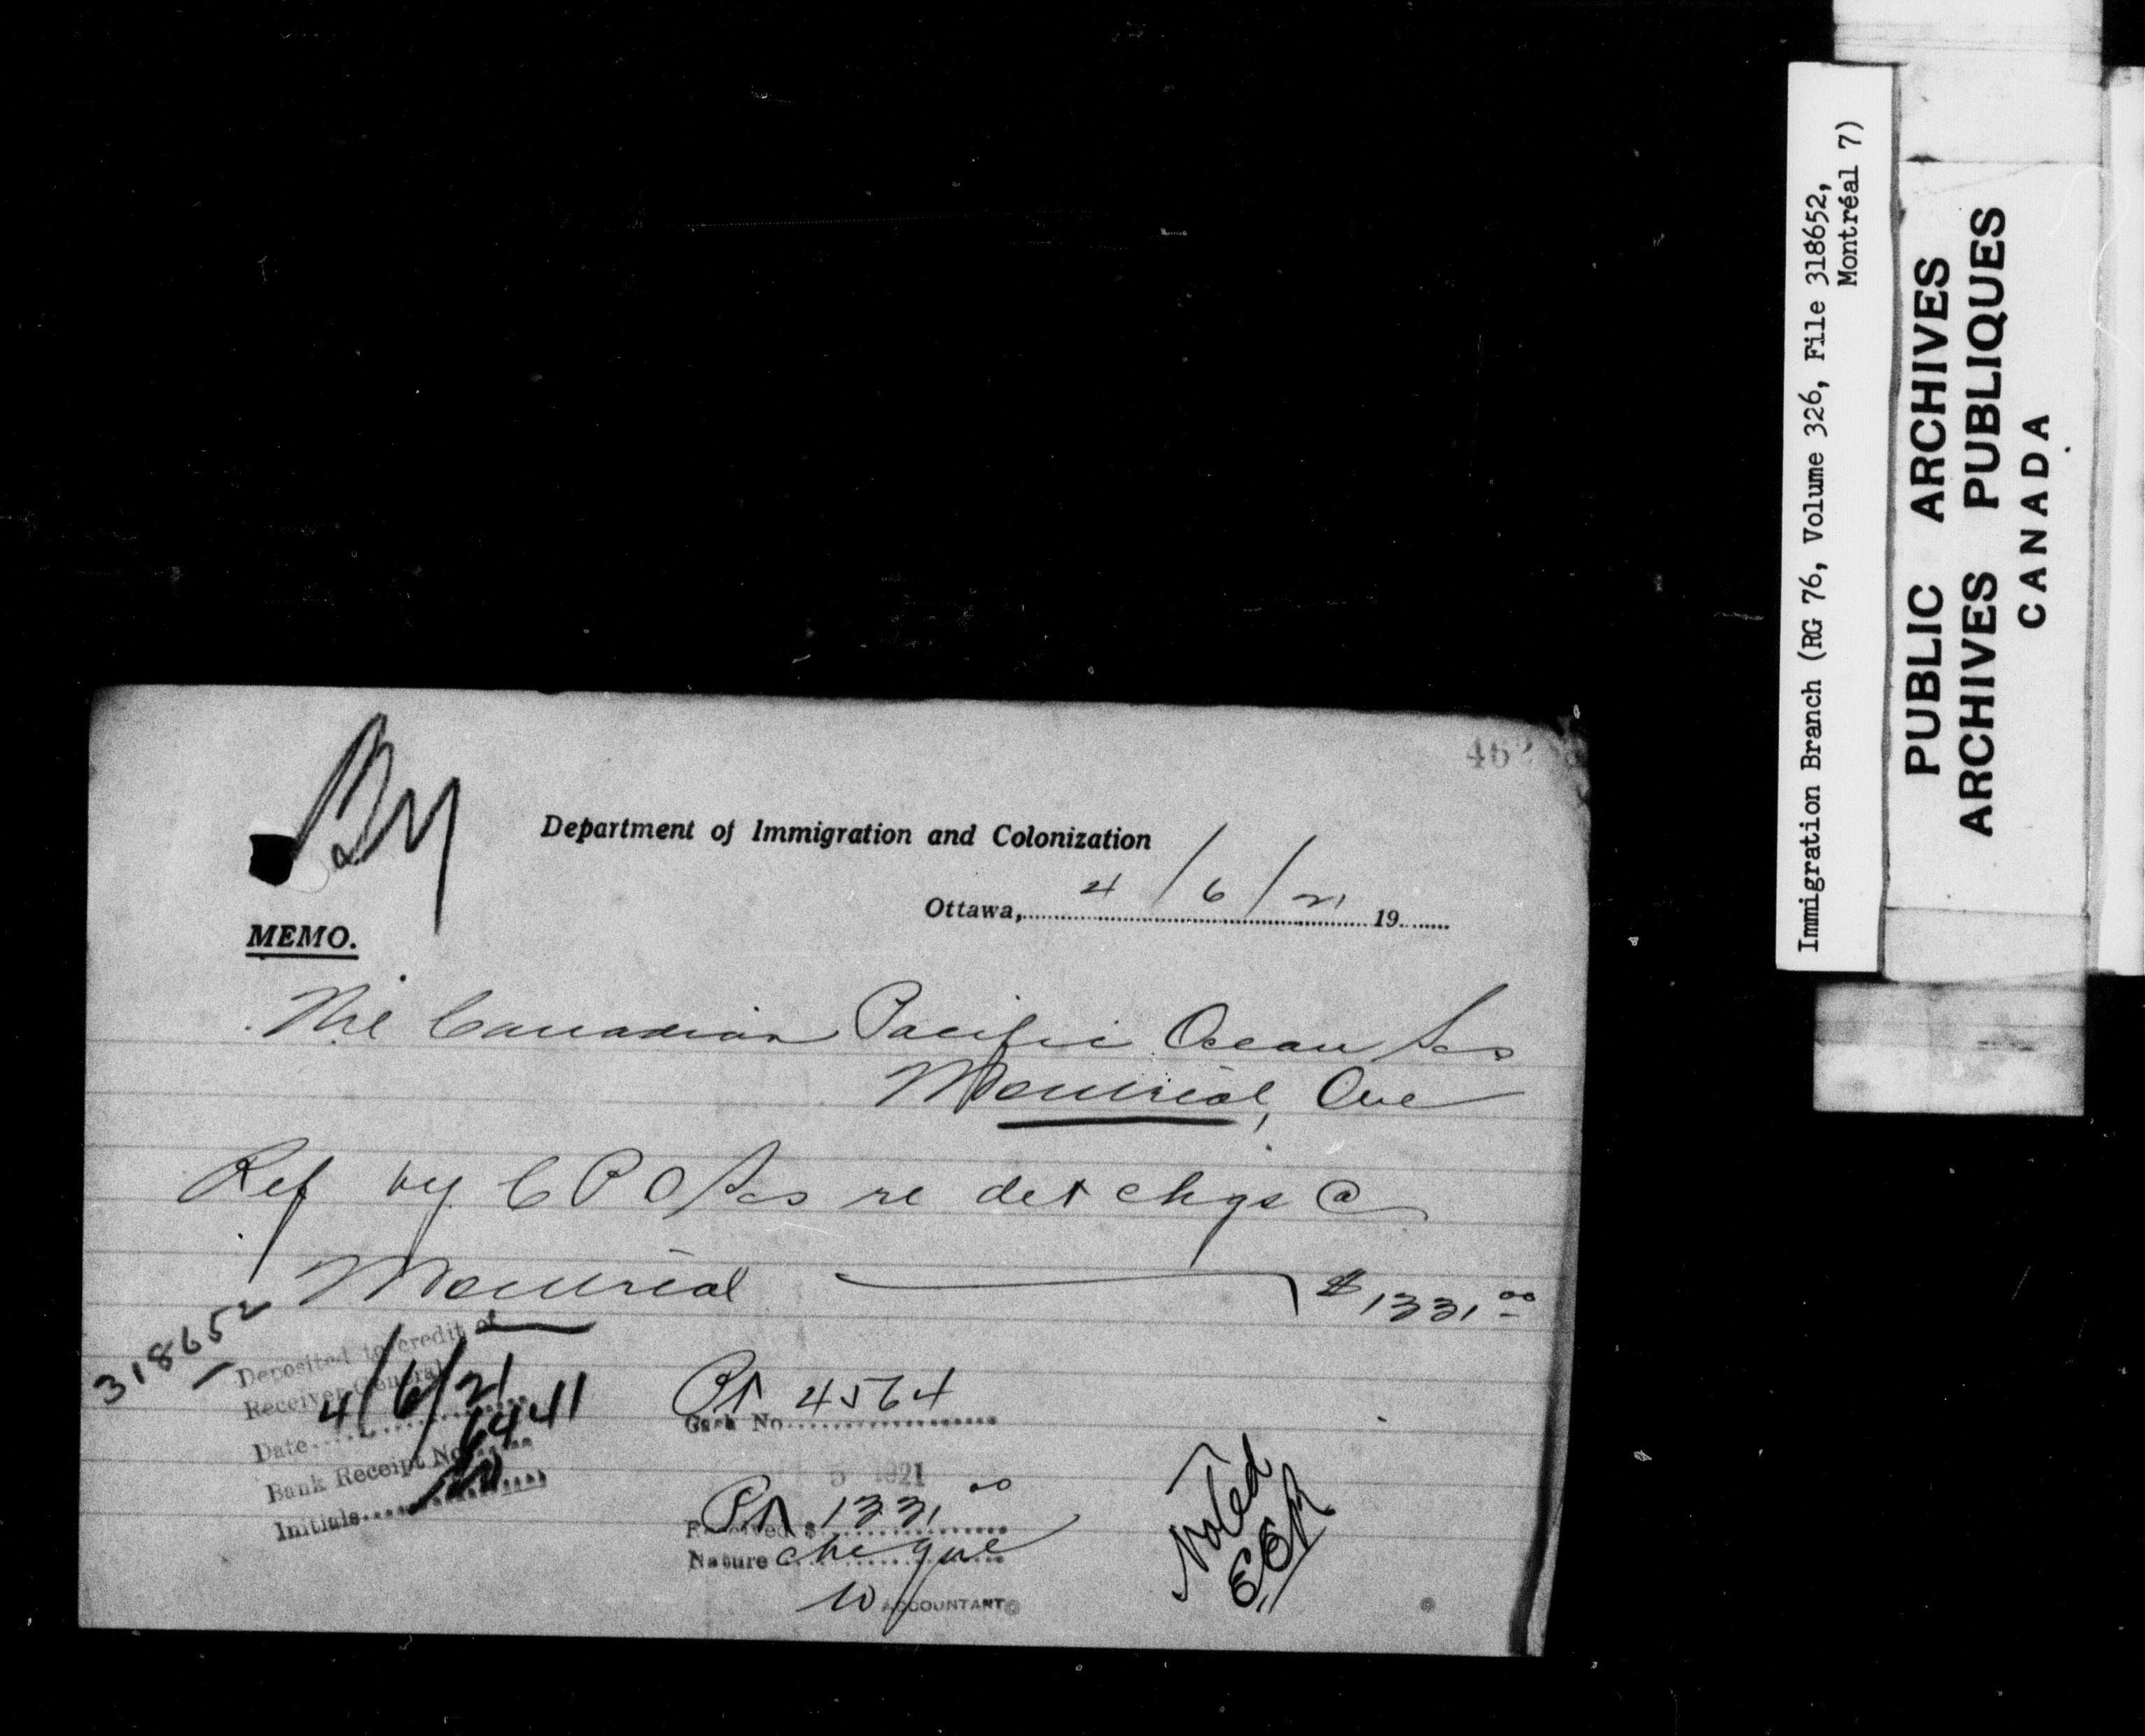 Department of Immigration and Colonization
Ottawa, 4/6/21 19
MEMO.
The Canadian Pacific Ocean Scs
Montreal, Que
Ref by C P O Scs re det chgs @
Montreal $1331.00
318652
Deposited to credit of
Receiver General
Date 4/6/21
Bank Receipt No 6441
Initials
Cash No. 4564
5 1921
Received $ 1331 00
Nature cheque
ACCOUNTANT
Noted
Immigration Branch (RG 76, Volume 326, File 318652,
Montréal 7)
PUBLIC ARCHIVES
ARCHIVES PUBLIQUES
CANADA